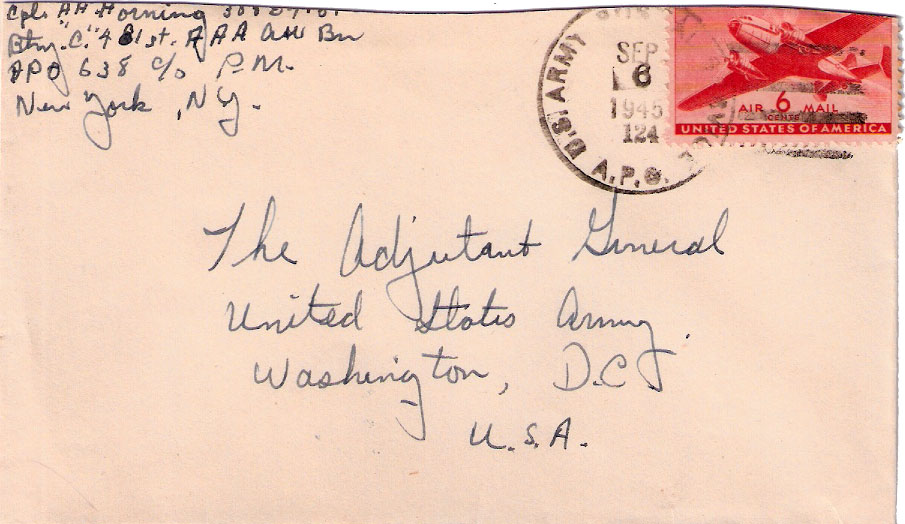 Cpl. AH Horning
Btry. "C." 481st. AAA AW Bn
APO 638 c/o P.M.
New York, NY.
U.S. ARMY
SEP
6
1945
124
A.P.O.
AIR 6 MAIL
CENTS
UNITED STATES OF AMERICA
The Adjutant General
United States Army.
Washington, D.C.
U.S.A.